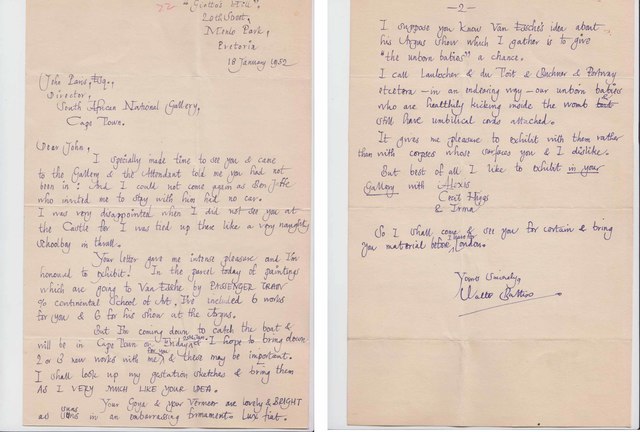 22
"Giotto's Hill"
20th Street,
Menlo Park,
Pretoria
18 January 1952
John Paris, Esq.,
Director,
South African National Gallery,
Cape Town.
Dear John,
I specially made time to see you & came
to the Gallery & the Attendant told me you had not
been in! And I could not come again as Ben Jaffe
who invited me to stay with him had no car.
I was very disappointed when I did not see you at
the Castle for I was tied up there like a very naughty
schoolboy in thrall.
Your letter gave me intense pleasure and I'm
honoured to exhibit! In the parcel today of paintings
which are going to Van Essche by PASSENGER TRAIN
c/o Continental School of Art. I've included 6 works
for you & 6 for his show at the Argus.
But I'm coming down to catch the boat &
will be in Cape Town on Friday I hope to bring down
2 or 3 new works with me for you & these may be important.
I shall look up my gestation sketches & bring them
AS I VERY MUCH LIKE YOUR IDEA.
Your Goya & your Vermeer are lovely & BRIGHT
as suns in an embarrassing firmament. Lux fiat.
- 2 -
I suppose you know Van Essche's idea about
his Argus show which I gather is to give
"the unborn babies" a chance.
I call Laubscher & du Toit & Buchner & Portway
etcetera - in an endearing way - our unborn babies
who are healthily kicking inside the womb but
still have umbilical cords attached.
It gives me pleasure to exhibit with them rather
than with corpses whose surfaces you & I dislike.
But best of all I like to exhibit in your
Gallery with Alexis
Cecil Higgs
& Irma
So I shall come & see you for certain & bring
you material before I leave for London.
Yours sincerely,
Walter Battiss